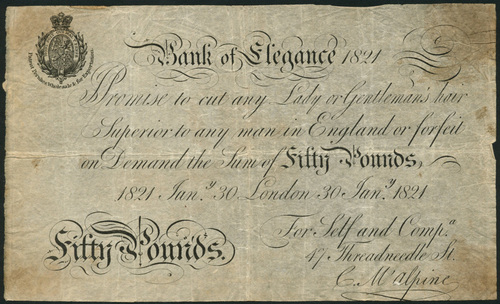 Bank of Elegance 1821
I Promise to cut any Lady or Gentleman's hair
Superior to any man in England or forfeit
on Demand the Sum of Fifty Pounds,
1821 Jan.y 30 London 30 Jan.y 1821
For Self and Comp.a
Fifty Pounds.
47 Threadneedle St.
C. McAlpine